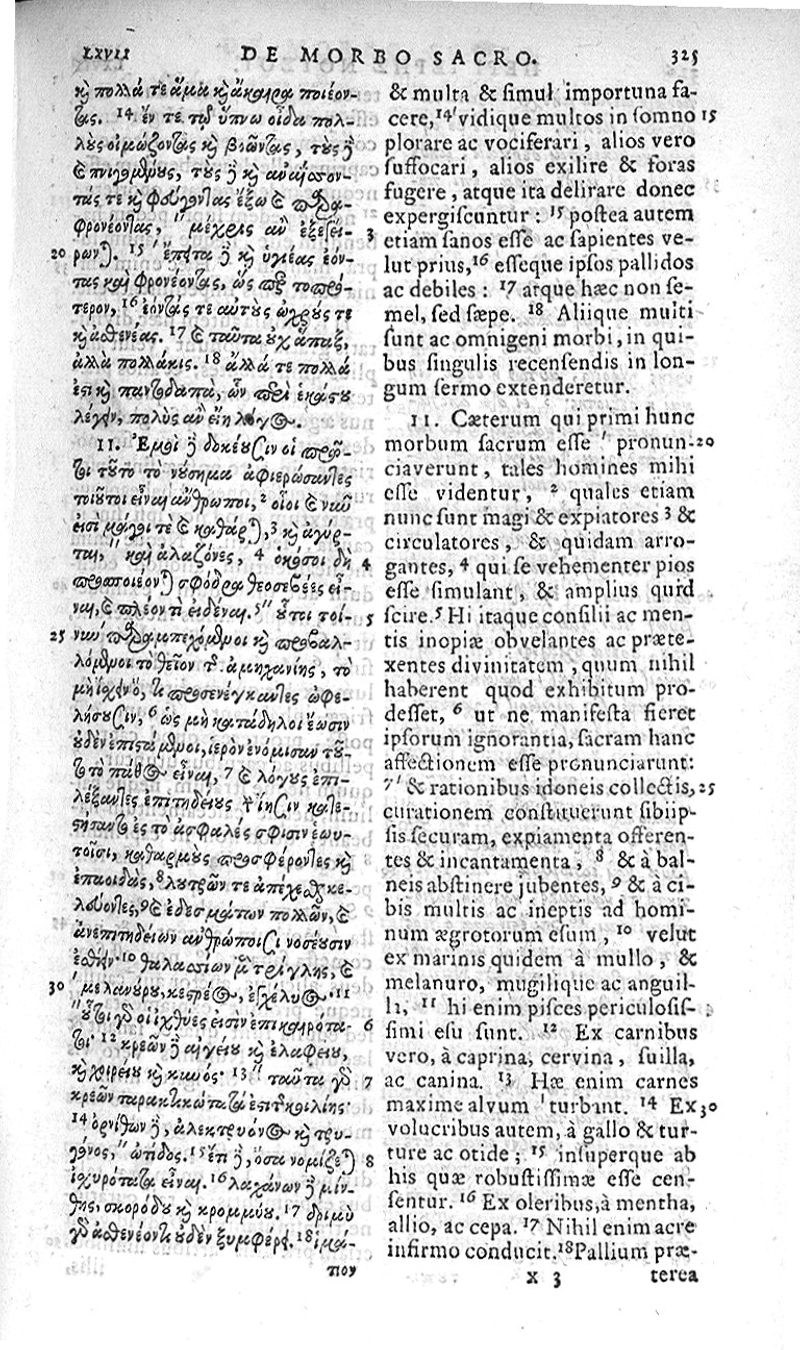 LXVII DE MORBO SACRO. 325
καὶ πολλά τε ἅμα καὶ ἄκαιρα ποιέον-
τας. 14 ἔν τε τῷ ὕπνῳ οἶδα πολ-
λοὺς οἰμώζοντας καὶ βοῶντας, τοὺς δὲ
καὶ πνιγομένους, τοὺς δὲ καὶ ἀναΐσσον-
τάς τε καὶ φεύγοντας ἔξω καὶ παρα-
φρονέοντας, " μέχρις ἂν ἐξεγεί- 3
20 ρωνται. 15 ἔπειτα δὲ καὶ ὑγιέας ἐόν-
τας καὶ φρονέοντας, ὡς περ τοπρό-
τερον, 16 ἐόντας τε αὐτοὺς ὠχρούς τε
καὶ ἀσθενέας. 17 καὶ ταῦτα οὐχ ἅπαξ,
ἀλλὰ πολλάκις. 18 ἄλλά τε πολλά
ἐστι καὶ παντοδαπὰ, ὧν περὶ ἑκάστου
λέγειν, πολὺς ἂν εἴη λόγος.
11. Ἐμοὶ δὲ δοκέουσιν οἱ πρῶ-
τοι τοῦτο τὸ νόσημα ἀφιερώσαντες
τοιοῦτοι εἶναι ἄνθρωποι, 2 οἷοι καὶ νῦν
εἰσὶ μάγοι τε καὶ καθάρται, 3 καὶ ἀγύρ-
ται, " καὶ ἀλαζόνες, 4 ὁκόσοι δὴ 4
προσποιέονται σφόδρα θεοσεβέες εἶ-
ναι, καὶ πλέον τι εἰδέναι. 5 " οὗτοι τοί- 5
25 νυν παραμπεχόμενοι καὶ προβαλ-
λόμενοι τὸ θεῖον τῆς ἀμηχανίης, τὸ
μὴ ἴσχειν ὅ, τι προσενέγκαντες ὠφε-
λήσουσιν, 6 ὡς μὴ κατάδηλοι ἔωσιν
οὐδὲν ἐπιστάμενοι, ἱερὸν ἐνόμισαν τοῦ-
το τὸ πάθος εἶναι, 7 καὶ λόγους ἐπι-
λέξαντες ἐπιτηδείους τὴν ἴησιν κατε-
στήσαντο ἐς τὸ ἀσφαλές σφισιν ἑωυ-
τοῖσι, καθαρμοὺς προσφέροντες καὶ
ἐπαοιδὰς, 8 λουτρῶν τε ἀπέχεσθαι κε-
λεύοντες, 9 καὶ ἐδεσμάτων πολλῶν, καὶ
ἀνεπιτηδείων ἀνθρώποισι νοσέουσιν
ἐσθίειν· 10 θαλασσίων μὲν τρίγλης, καὶ
30 ʹμελανούρου, κεστρέος, ἐγχέλυος· 11
"οὗτοι γὰρ οἱ ἰχθύες εἰσὶν ἐπικαιρότα- 6
τοι· 12 κρεῶν δὲ αἰγείου καὶ ἐλαφείου,
καὶ χοιρείου καὶ κυνός· 13 " ταῦτα γὰρ 7
κρεῶν ταρακτικώτατά ἐστι τῆς κοιλίης·
14 ὀρνίθων δὲ, ἀλεκτρυόνος καὶ τρυ-
γόνος, " ὠτίδος. 15 ἔτι δὲ, ὅσα νομίζεται 8
ἰσχυρότατα εἶναι. 16 λαχάνων δὲ μίν-
θης, σκορόδου καὶ κρομμύου. 17 δριμὺ
γὰρ ἀσθενέοντι οὐδὲν ξυμφέρει. 18 ἱμά-
τιον
& multa & simul importuna fa-
cere, 14 ʹvidique multos in somno 15
plorare ac vociferari, alios vero
suffocari, alios exilire & foras
fugere, atque ita delirare donec
expergiscuntur : 15 postea autem
etiam sanos esse ac sapientes ve-
lut prius, 16 esseque ipsos pallidos
ac debiles : 17 atque hæc non se-
mel, sed sæpe. 18 Aliique multi
sunt ac omnigeni morbi, in qui-
bus singulis recensendis in lon-
gum sermo extenderetur.
11. Cæterum qui primi hunc
morbum sacrum esse ʹ pronun- 20
ciaverunt, tales homines mihi
esse videntur, 2 quales etiam
nunc sunt magi & expiatores 3 &
circulatores, & quidam arro-
gantes, 4 qui se vehementer pios
esse simulant, & amplius quid
scire. 5 Hi itaque consilii ac men-
tis inopiæ obvelantes ac præte-
xentes divinitatem, quum nihil
haberent quod exhibitum pro-
desset, 6 ut ne manifesta fieret
ipsorum ignorantia, sacram hanc
affectionem esse pronunciarunt:
7 ʹ & rationibus idoneis collectis, 25
curationem constituerunt sibiip-
sis securam, expiamenta offeren-
tes & incantamenta, 8 & à bal-
neis abstinere jubentes, 9 & à ci-
bis multis ac ineptis ad homi-
num ægrotorum esum, 10 velut
ex marinis quidem à mullo, &
melanuro, mugilique ac anguil-
li, 11 hi enim pisces periculosis-
simi esu sunt. 12 Ex carnibus
vero, à caprina, cervina, suilla,
ac canina. 13 Hæ enim carnes
maxime alvum ʹ turbant. 14 Ex 30
volucribus autem, à gallo & tur-
ture ac otide ; 15 insuperque ab
his quæ robustissimæ esse cen-
sentur. 16 Ex oleribus, à mentha,
allio, ac cepa. 17 Nihil enim acre
infirmo conducit. 18 Pallium præ-
X 3 terea